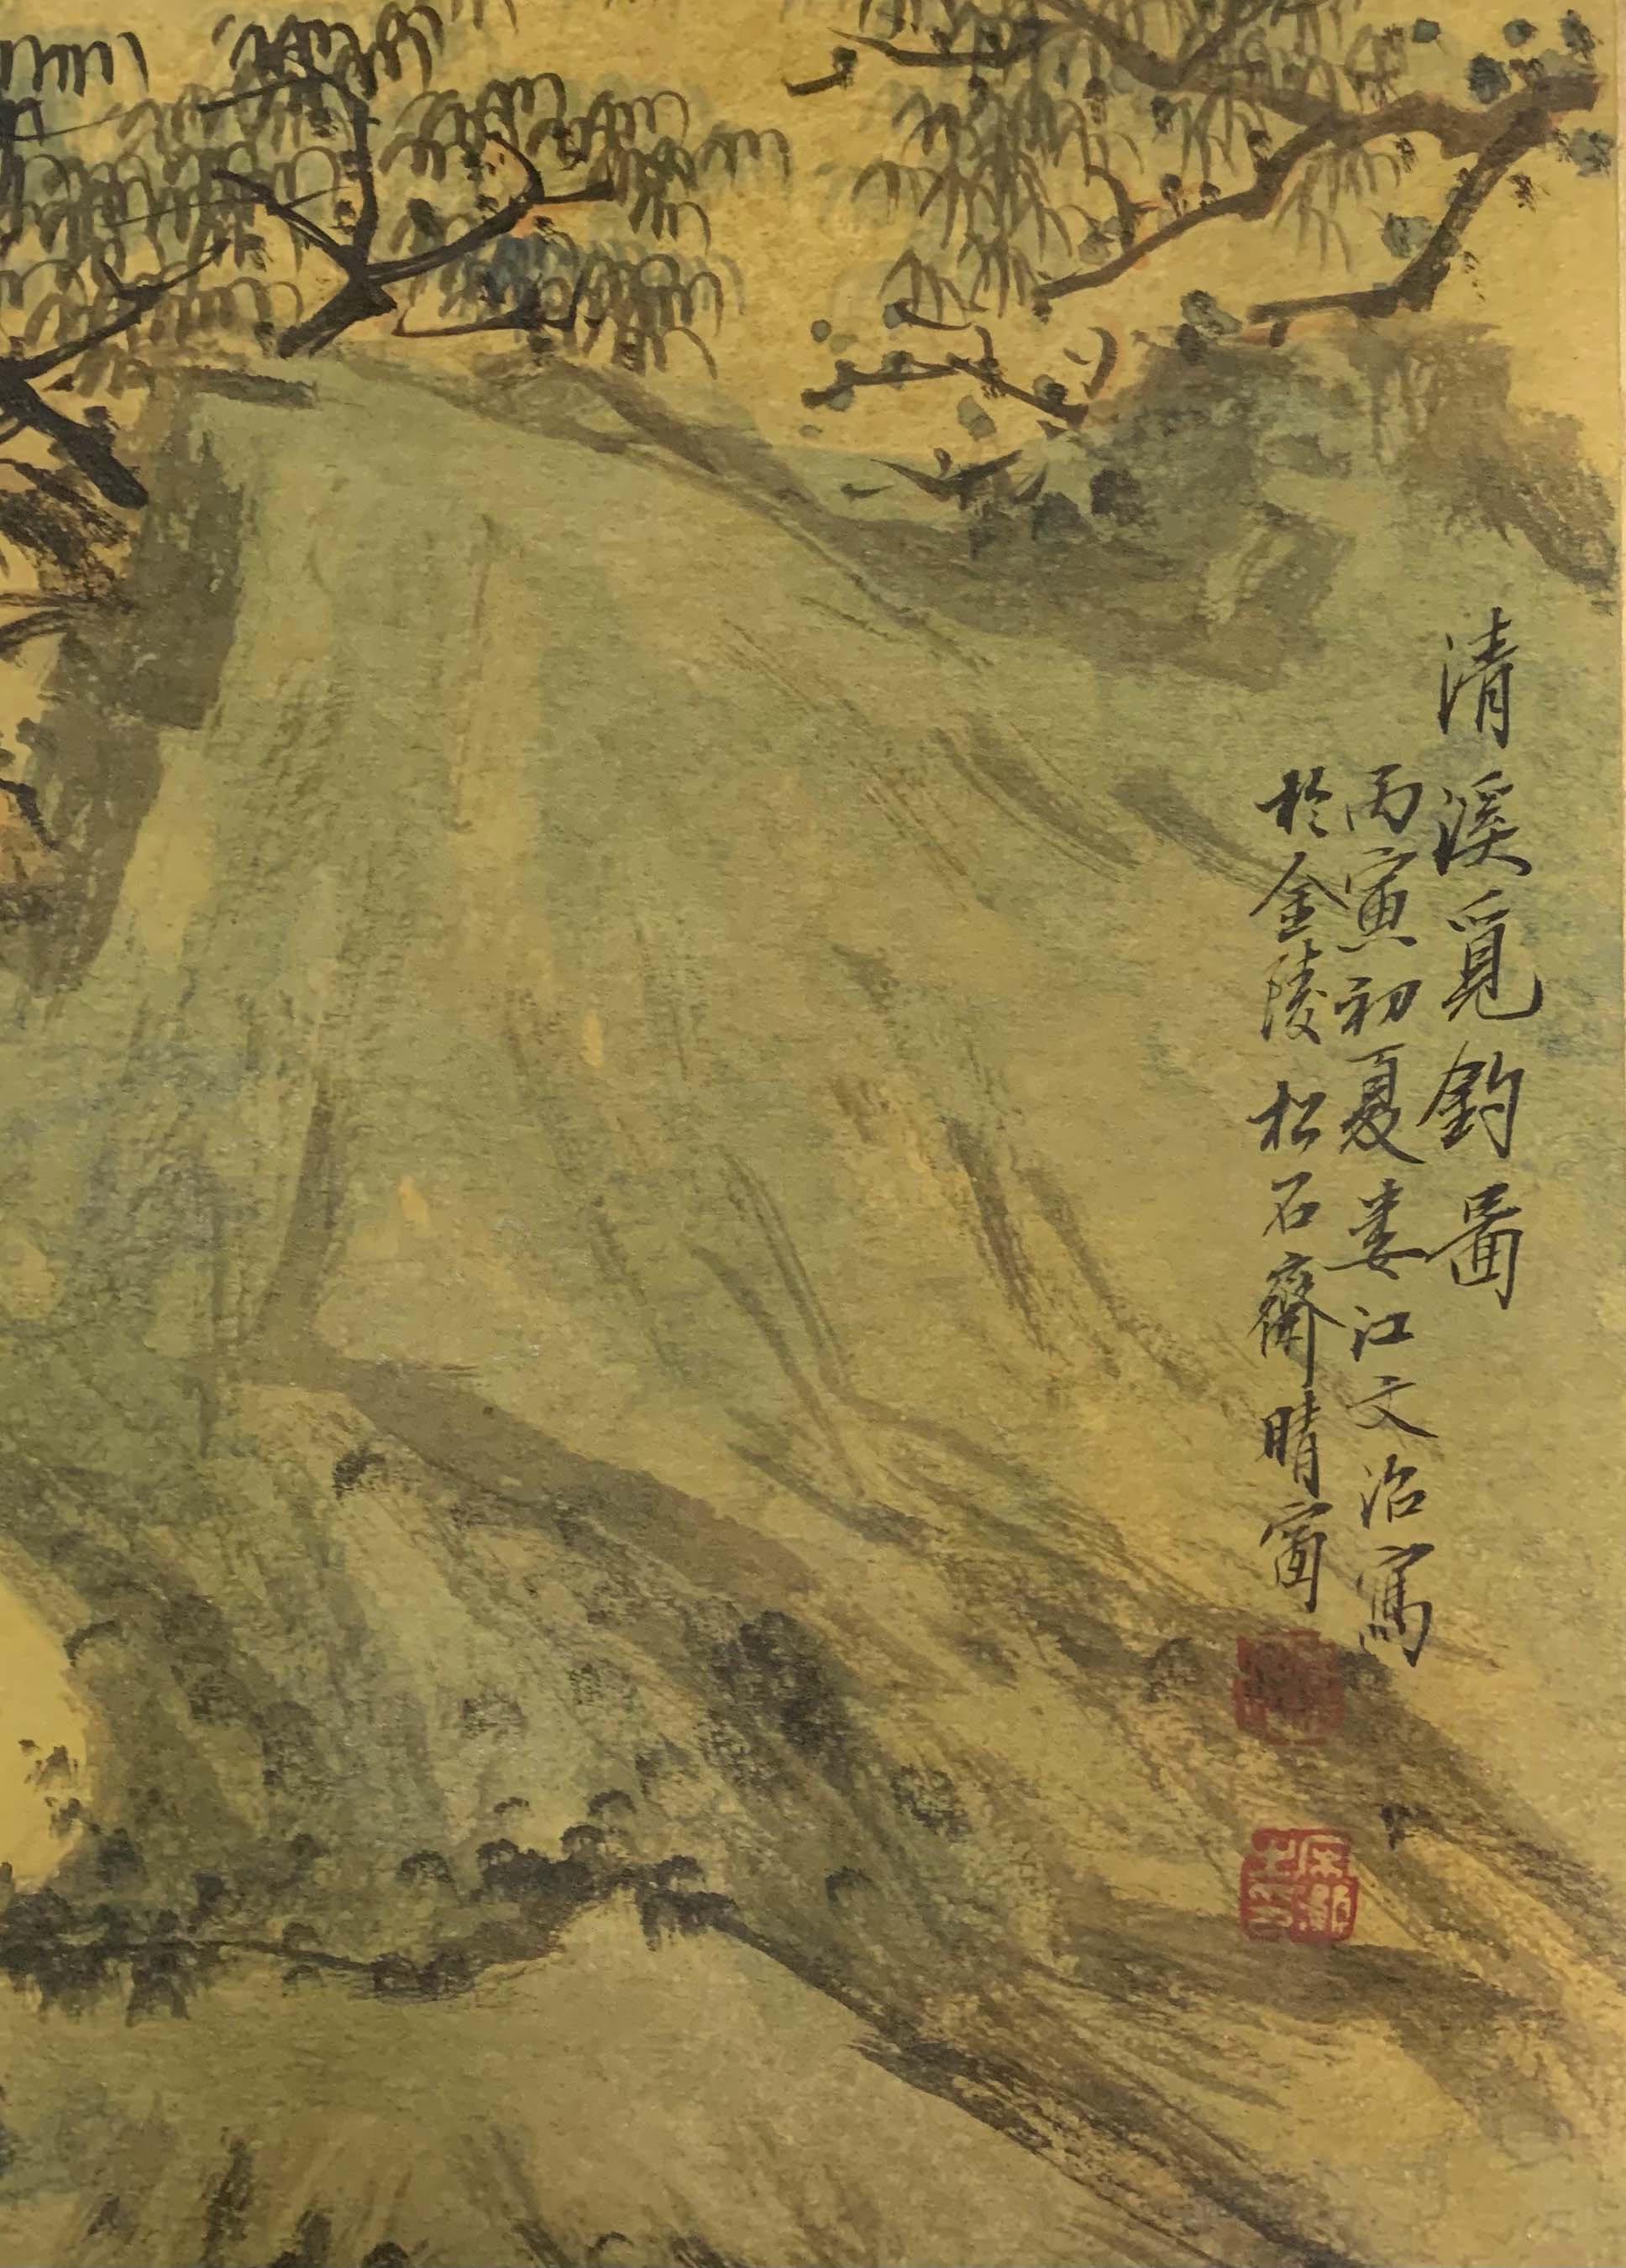 清溪覓釣圖
丙寅初夏婁江文治寫
於金陵松石齋晴窗